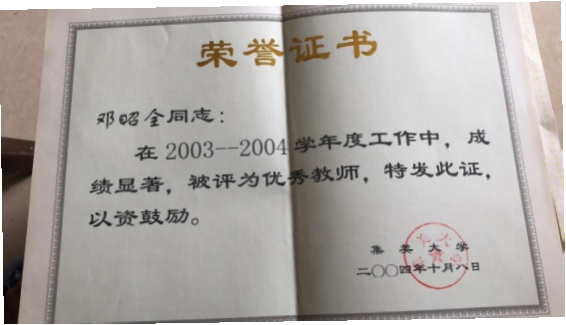 荣誉证书
邓昭全同志：
在2003--2004学年度工作中，成
绩显著，被评为优秀教师，特发此证，
以资鼓励。
集美大学
二〇〇四年十月八日